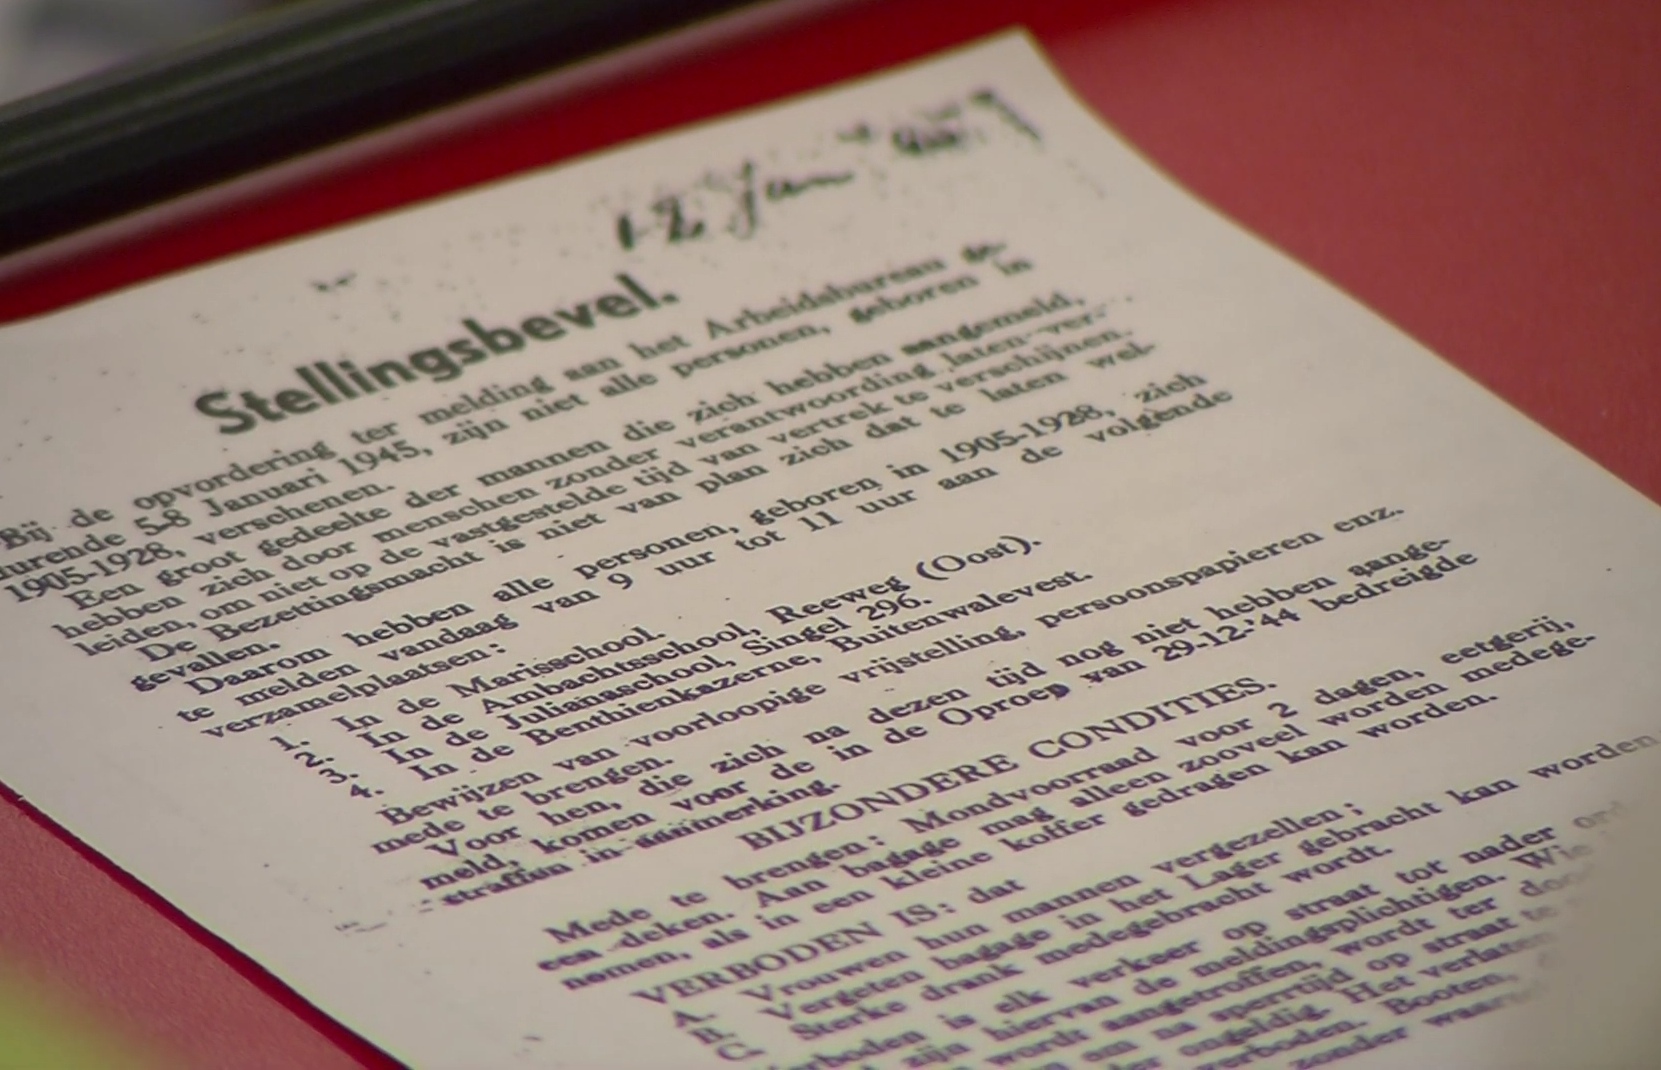 12 Jan
Stellingsbevel.
Bij de opvordering ter melding aan het Arbeidsbureau de-
durende 5-8 Januari 1945, zijn niet alle personen, geboren in
1905-1928, verschenen.
Een groot gedeelte der mannen die zich hebben aangemeld,
hebben zich door menschen zonder verantwoording laten ver-
leiden, om niet op de vastgestelde tijd van vertrek te verschijnen.
De Bezettingsmacht is niet van plan zich dat te laten wel-
gevallen.
Daarom hebben alle personen, geboren in 1905-1928, zich
te melden vandaag van 9 uur tot 11 uur aan de volgende
verzamelplaatsen:
1. In de Marisschool.
2. In de Ambachtsschool, Reeweg (Oost).
3. In de Julianaschool, Singel 296.
4. In de Benthienkazerne, Buitenwalevest.
Bewijzen van voorloopige vrijstelling, persoonspapieren enz.
mede te brengen.
Voor hen, die zich na dezen tijd nog niet hebben aange-
meld, komen voor de in de Oproep van 29-12-'44 bedreigde
straffen in aanmerking.
BIJZONDERE CONDITIES.
Mede te brengen: Mondvoorraad voor 2 dagen, eetgerij,
een deken. Aan bagage mag alleen zooveel worden medege-
nomen, als in een kleine koffer gedragen kan worden.
VERBODEN IS: dat
A. Vrouwen hun mannen vergezellen;
B. Vergeten bagage in het Lager gebracht kan worden
C. Sterke drank medegebracht wordt.
is elk verkeer op straat tot nader
zijn hiervan de meldingsplichtigen. Wie
wordt aangetroffen, wordt ter
om na sperrtijd op straat te
ongeldig. Het verlaten
verboden. Booten,
zonder